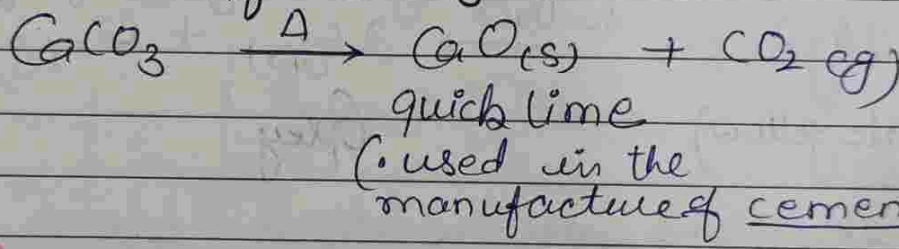 CaCO₃ —Δ→ CaO(s) + CO₂ (g)
quick lime
(• used in the
manufacture of cemen